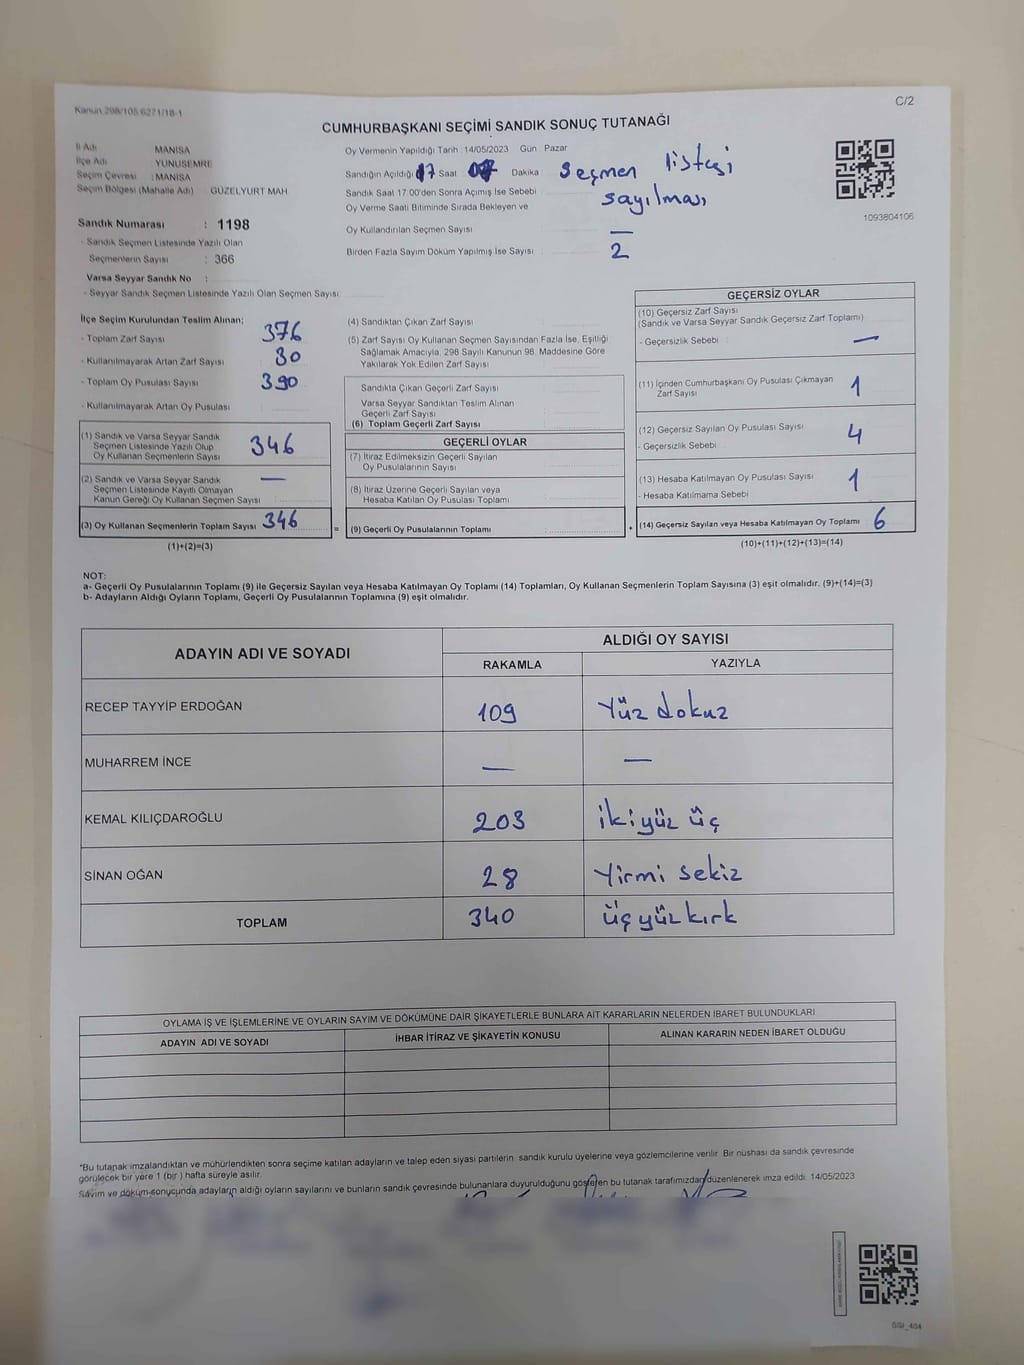 Kanun 298/105 6271/18-1
C/2
CUMHURBAŞKANI SEÇİMİ SANDIK SONUÇ TUTANAĞI
İl Adı MANİSA
İlçe Adı YUNUSEMRE
Seçim Çevresi : MANİSA
Seçim Bölgesi (Mahalle Adı) GÜZELYURT MAH.
Oy Vermenin Yapıldığı Tarih : 14/05/2023 Gün : Pazar
Sandığın Açıldığı 17 Saat 07 Dakika Seçmen listesi
Sandık Saat 17.00'den Sonra Açımış İse Sebebi sayılması
Oy Verme Saati Bitiminde Sırada Bekleyen ve
Oy Kullandırılan Seçmen Sayısı —
Birden Fazla Sayım Döküm Yapılmış İse Sayısı : 2
1093804106
Sandık Numarası : 1198
- Sandık Seçmen Listesinde Yazılı Olan
Seçmenlerin Sayısı : 366
Varsa Seyyar Sandık No :
- Seyyar Sandık Seçmen Listesinde Yazılı Olan Seçmen Sayısı
İlçe Seçim Kurulundan Teslim Alınan;
- Toplam Zarf Sayısı 376
- Kullanılmayarak Artan Zarf Sayısı : 30
- Toplam Oy Pusulası Sayısı 390
- Kullanılmayarak Artan Oy Pusulası :
(1) Sandık ve Varsa Seyyar Sandık
Seçmen Listesinde Yazılı Olup
Oy Kullanan Seçmenlerin Sayısı 346
(2) Sandık ve Varsa Seyyar Sandık —
Seçmen Listesinde Kayıtlı Olmayan
Kanun Gereği Oy Kullanan Seçmen Sayısı :
(3) Oy Kullanan Seçmenlerin Toplam Sayısı 346
(1)+(2)=(3)
(4) Sandıktan Çıkan Zarf Sayısı :
(5) Zarf Sayısı Oy Kullanan Seçmen Sayısından Fazla İse, Eşitliği
Sağlamak Amacıyla, 298 Sayılı Kanunun 98. Maddesine Göre
Yakılarak Yok Edilen Zarf Sayısı :
Sandıkta Çıkan Geçerli Zarf Sayısı :
Varsa Seyyar Sandıktan Teslim Alınan
Geçerli Zarf Sayısı :
(6) Toplam Geçerli Zarf Sayısı :
GEÇERLİ OYLAR
(7) İtiraz Edilmeksizin Geçerli Sayılan
Oy Pusulalarının Sayısı
(8) İtiraz Üzerine Geçerli Sayılan veya
Hesaba Katılan Oy Pusulası Toplamı
= (9) Geçerli Oy Pusulalarının Toplamı +
GEÇERSİZ OYLAR
(10) Geçersiz Zarf Sayısı
(Sandık ve Varsa Seyyar Sandık Geçersiz Zarf Toplamı)
- Geçersizlik Sebebi : —
(11) İçinden Cumhurbaşkanı Oy Pusulası Çıkmayan
Zarf Sayısı 1
(12) Geçersiz Sayılan Oy Pusulası Sayısı 4
- Geçersizlik Sebebi
(13) Hesaba Katılmayan Oy Pusulası Sayısı 1
- Hesaba Katılmama Sebebi
(14) Geçersiz Sayılan veya Hesaba Katılmayan Oy Toplamı 6
(10)+(11)+(12)+(13)=(14)
NOT:
a- Geçerli Oy Pusulalarının Toplamı (9) ile Geçersiz Sayılan veya Hesaba Katılmayan Oy Toplamı (14) Toplamları, Oy Kullanan Seçmenlerin Toplam Sayısına (3) eşit olmalıdır. (9)+(14)=(3)
b- Adayların Aldığı Oyların Toplamı, Geçerli Oy Pusulalarının Toplamına (9) eşit olmalıdır.
ADAYIN ADI VE SOYADI ALDIĞI OY SAYISI
RAKAMLA YAZIYLA
RECEP TAYYİP ERDOĞAN 109 Yüz dokuz
MUHARREM İNCE — —
KEMAL KILIÇDAROĞLU 203 ikiyüz üç
SİNAN OĞAN 28 Yirmi sekiz
TOPLAM 340 üçyüzkırk
OYLAMA İŞ VE İŞLEMLERİNE VE OYLARIN SAYIM VE DÖKÜMÜNE DAİR ŞİKAYETLERLE BUNLARA AİT KARARLARIN NELERDEN İBARET BULUNDUKLARI
ADAYIN ADI VE SOYADI İHBAR İTİRAZ VE ŞİKAYETİN KONUSU ALINAN KARARIN NEDEN İBARET OLDUĞU
*Bu tutanak imzalandıktan ve mühürlendikten sonra seçime katılan adayların ve talep eden siyasi partilerin sandık kurulu üyelerine veya gözlemcilerine verilir. Bir nüshası da sandık çevresinde
görülecek bir yere 1 (bir) hafta süreyle asılır.
Sayım ve döküm sonucunda adayların aldığı oyların sayılarını ve bunların sandık çevresinde bulunanlara duyurulduğunu gösteren bu tutanak tarafımızdan düzenlenerek imza edildi. 14/05/2023